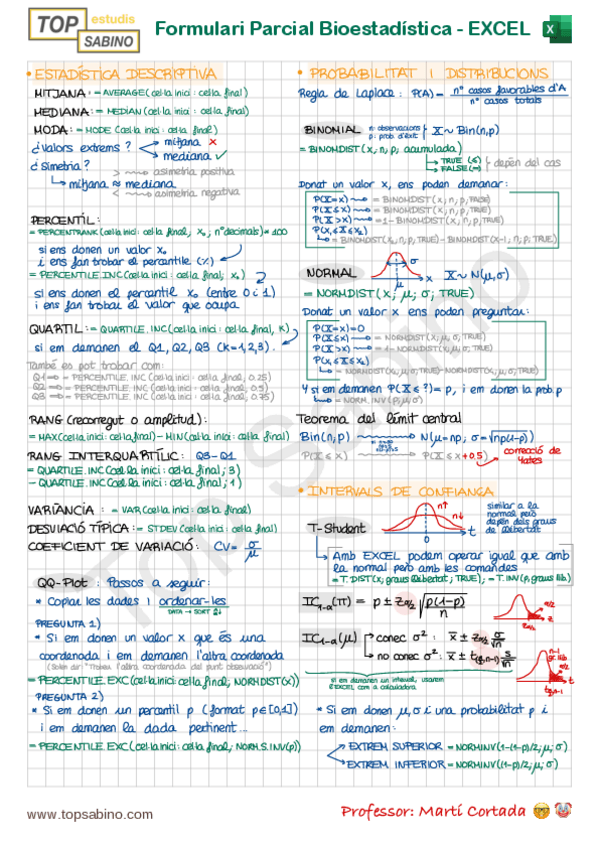 TOP estudis
SABINO
Formulari Parcial Bioestadística - EXCEL
• ESTADÍSTICA DESCRIPTIVA
MITJANA: = AVERAGE(cel·la inici : cel·la final)
MEDIANA: = MEDIAN(cel·la inici : cel·la final)
MODA: = MODE(cel·la inici : cel·la final)
¿Valors extrems? mitjana ✗
mediana ✓
¿Simetria? > asimetria positiva
mitjana ≈ mediana
< asimetria negativa
PERCENTIL:
= PERCENTRANK(cel·la inici : cel·la final; x₀; nºdecimals)*100
si ens donen un valor x₀
i ens fan trobar el percentile (%)
= PERCENTILE.INC(cel·la inici : cel·la final; x₀)
si ens donen el percentil x₀ (entre 0 i 1)
i ens fan trobar el valor que ocupa
QUARTIL: = QUARTILE.INC(cel·la inici : cel·la final, K)
si em demanen el Q1, Q2, Q3 (K=1,2,3).
També es pot trobar com:
Q1 => = PERCENTILE.INC(cel·la inici : cel·la final, 0.25)
Q2 => = PERCENTILE.INC(cel·la inici : cel·la final, 0.5)
Q3 => = PERCENTILE.INC(cel·la inici : cel·la final, 0.75)
RANG (recorregut o amplitud):
= MAX(cel·la inici : cel·la final) - MIN(cel·la inici : cel·la final)
RANG INTERQUARTÍLIC: Q3-Q1
= QUARTILE.INC(cel·la inici : cel·la final; 3)
- QUARTILE.INC(cel·la inici : cel·la final; 1)
VARIÀNCIA : = VAR(cel·la inici : cel·la final)
DESVIACIÓ TÍPICA: = STDEV(cel·la inici : cel·la final)
COEFICIENT DE VARIACIÓ: CV= σ/μ
QQ-Plot : Passos a seguir:
* Copiar les dades i ordenar-les
DATA → SORT
PREGUNTA 1)
* Si em donen un valor x que és una
coordenada i em demanen l'altra coordenada
(Solen dir: "Troben l'altra coordenada del punt observació")
= PERCENTILE.EXC(cel·la inici : cel·la final; NORMDIST(x))
PREGUNTA 2)
* Si em donen un percentil p (format p∈[0,1])
i em demanen la dada pertinent...
= PERCENTILE.EXC(cel·la inici : cel·la final; NORM.S.INV(p))
• PROBABILITAT I DISTRIBUCIONS
Regla de Laplace: P(A) = nº casos favorables d'A / nº casos totals
BINOMIAL n: observacions p: prob. d'èxit X~Bin(n,p)
= BINOMDIST(x; n; p; acumulada)
TRUE (≤)
FALSE (=) depèn del cas
Donat un valor x, ens poden demanar:
P(X=x) = BINOMDIST(x; n; p, FALSE)
P(X≤x) = BINOMDIST(x; n; p; TRUE)
P(X>x) = 1-BINOMDIST(x; n; p; TRUE)
P(x₁≤X≤x₂)
= BINOMDIST(x₂; n; p, TRUE) - BINOMDIST(x₁-1; n; p; TRUE)
NORMAL σ μ x X~N(μ,σ)
= NORMDIST(x; μ; σ; TRUE)
Donat un valor x ens poden preguntar:
P(X=x)=0
P(X≤x) = NORMDIST(x; μ; σ; TRUE)
P(X>x) = 1-NORMDIST(x; μ; σ, TRUE)
P(x₁≤X≤x₂)
= NORMDIST(x₂; μ; σ; TRUE) - NORMDIST(x₁; μ; σ; TRUE)
Y si em demanen P(X≤?)=p, i em donen la prob. p
= NORM.INV(p; μ; σ)
Teorema del límit central
Bin(n; p) N(μ=np; σ=√np(1-p))
P(X≤x) P(X≤x+0,5) correcció de Yates
• INTERVALS DE CONFIANÇA
T-Student n↑ n↓ 0 t
similar a la
normal però
depèn dels graus
de llibertat
Amb EXCEL podem operar igual que amb
la normal però amb les comandes
= T.DIST(x; graus llibertat; TRUE); = T.INV(p, graus llib.)
IC₁₋α(π) = p ± zα/₂ √p(1-p)/n α/2 z
IC₁₋α(μ) conec σ²: x̄ ± zα/₂ σ/√n
no conec σ²: x̄ ± t(α/₂,n-1) s/√n
si em demanen un interval, usarem
l'EXCEL com a calculadora
* Si em donen μ, σ i una probabilitat p i
em demanen:
EXTREM SUPERIOR = NORMINV(1-(1-p)/2; μ; σ)
EXTREM INFERIOR = NORMINV((1-p)/2; μ; σ)
Top Sabino
www.topsabino.com
Professor: Martí Cortada